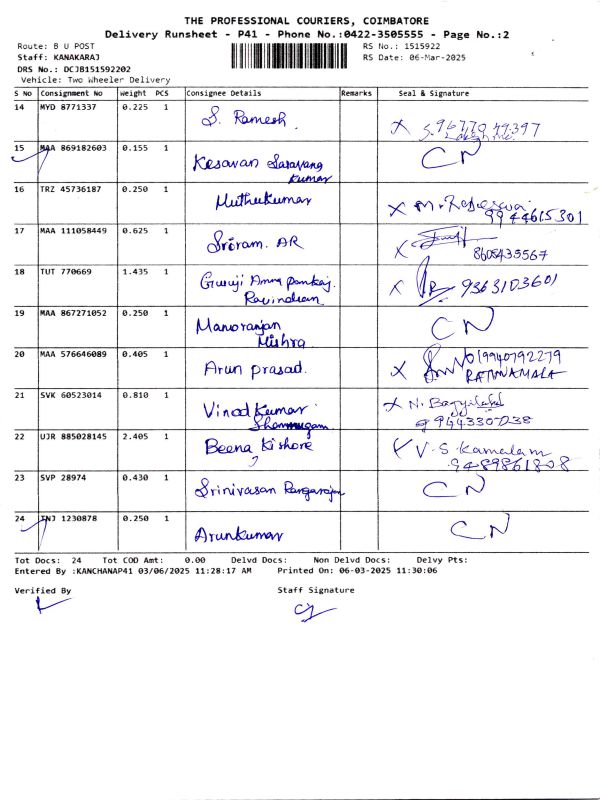 THE PROFESSIONAL COURIERS, COIMBATORE
Delivery Runsheet - P41 - Phone No.:0422-3505555 - Page No.:2
Route: B U POST
RS No.: 1515922
Staff: KANAKARAJ
RS Date: 06-Mar-2025
DRS No.: DCJB151592202
Vehicle: Two Wheeler Delivery
S No Consignment No Weight PCS Consignee Details Remarks Seal & Signature
14 MYD 8771337 0.225 1 S. Ramesh
15 MAA 869182603 0.155 1 Kesavan Saravana CN
Kumar
16 TRZ 45736187 0.250 1 Muthukumar X M.
9944615301
17 MAA 111058449 0.625 1 Sriram. AR X
8608435567
18 TUT 770669 1.435 1 Guruji Amma Pankaj. X 9363103601
Ravindran
19 MAA 867271052 0.250 1 Manoranjan CN
Mishra
20 MAA 576646089 0.405 1 Arun prasad. X 9940792279
RATHNAMALA
21 SVK 60523014 0.810 1 Vinod Kumar X N.
Shanmugam 9443307038
22 UJR 885028145 2.405 1 Beena Kishore V. S. Kamalam
9489861808
23 SVP 28974 0.430 1 Srinivasan Rangarajan CN
24 TNJ 1230878 0.250 1 Arunkumar CN
Tot Docs: 24 Tot COD Amt: 0.00 Delvd Docs: Non Delvd Docs: Delvy Pts:
Entered By :KANCHANAP41 03/06/2025 11:28:17 AM Printed On: 06-03-2025 11:30:06
Verified By Staff Signature